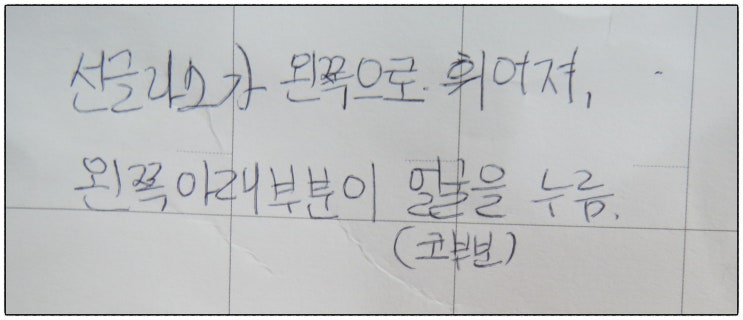 선글라스가 왼쪽으로 휘어져,
왼쪽아래부분이 얼굴을 누름.
(코부분)